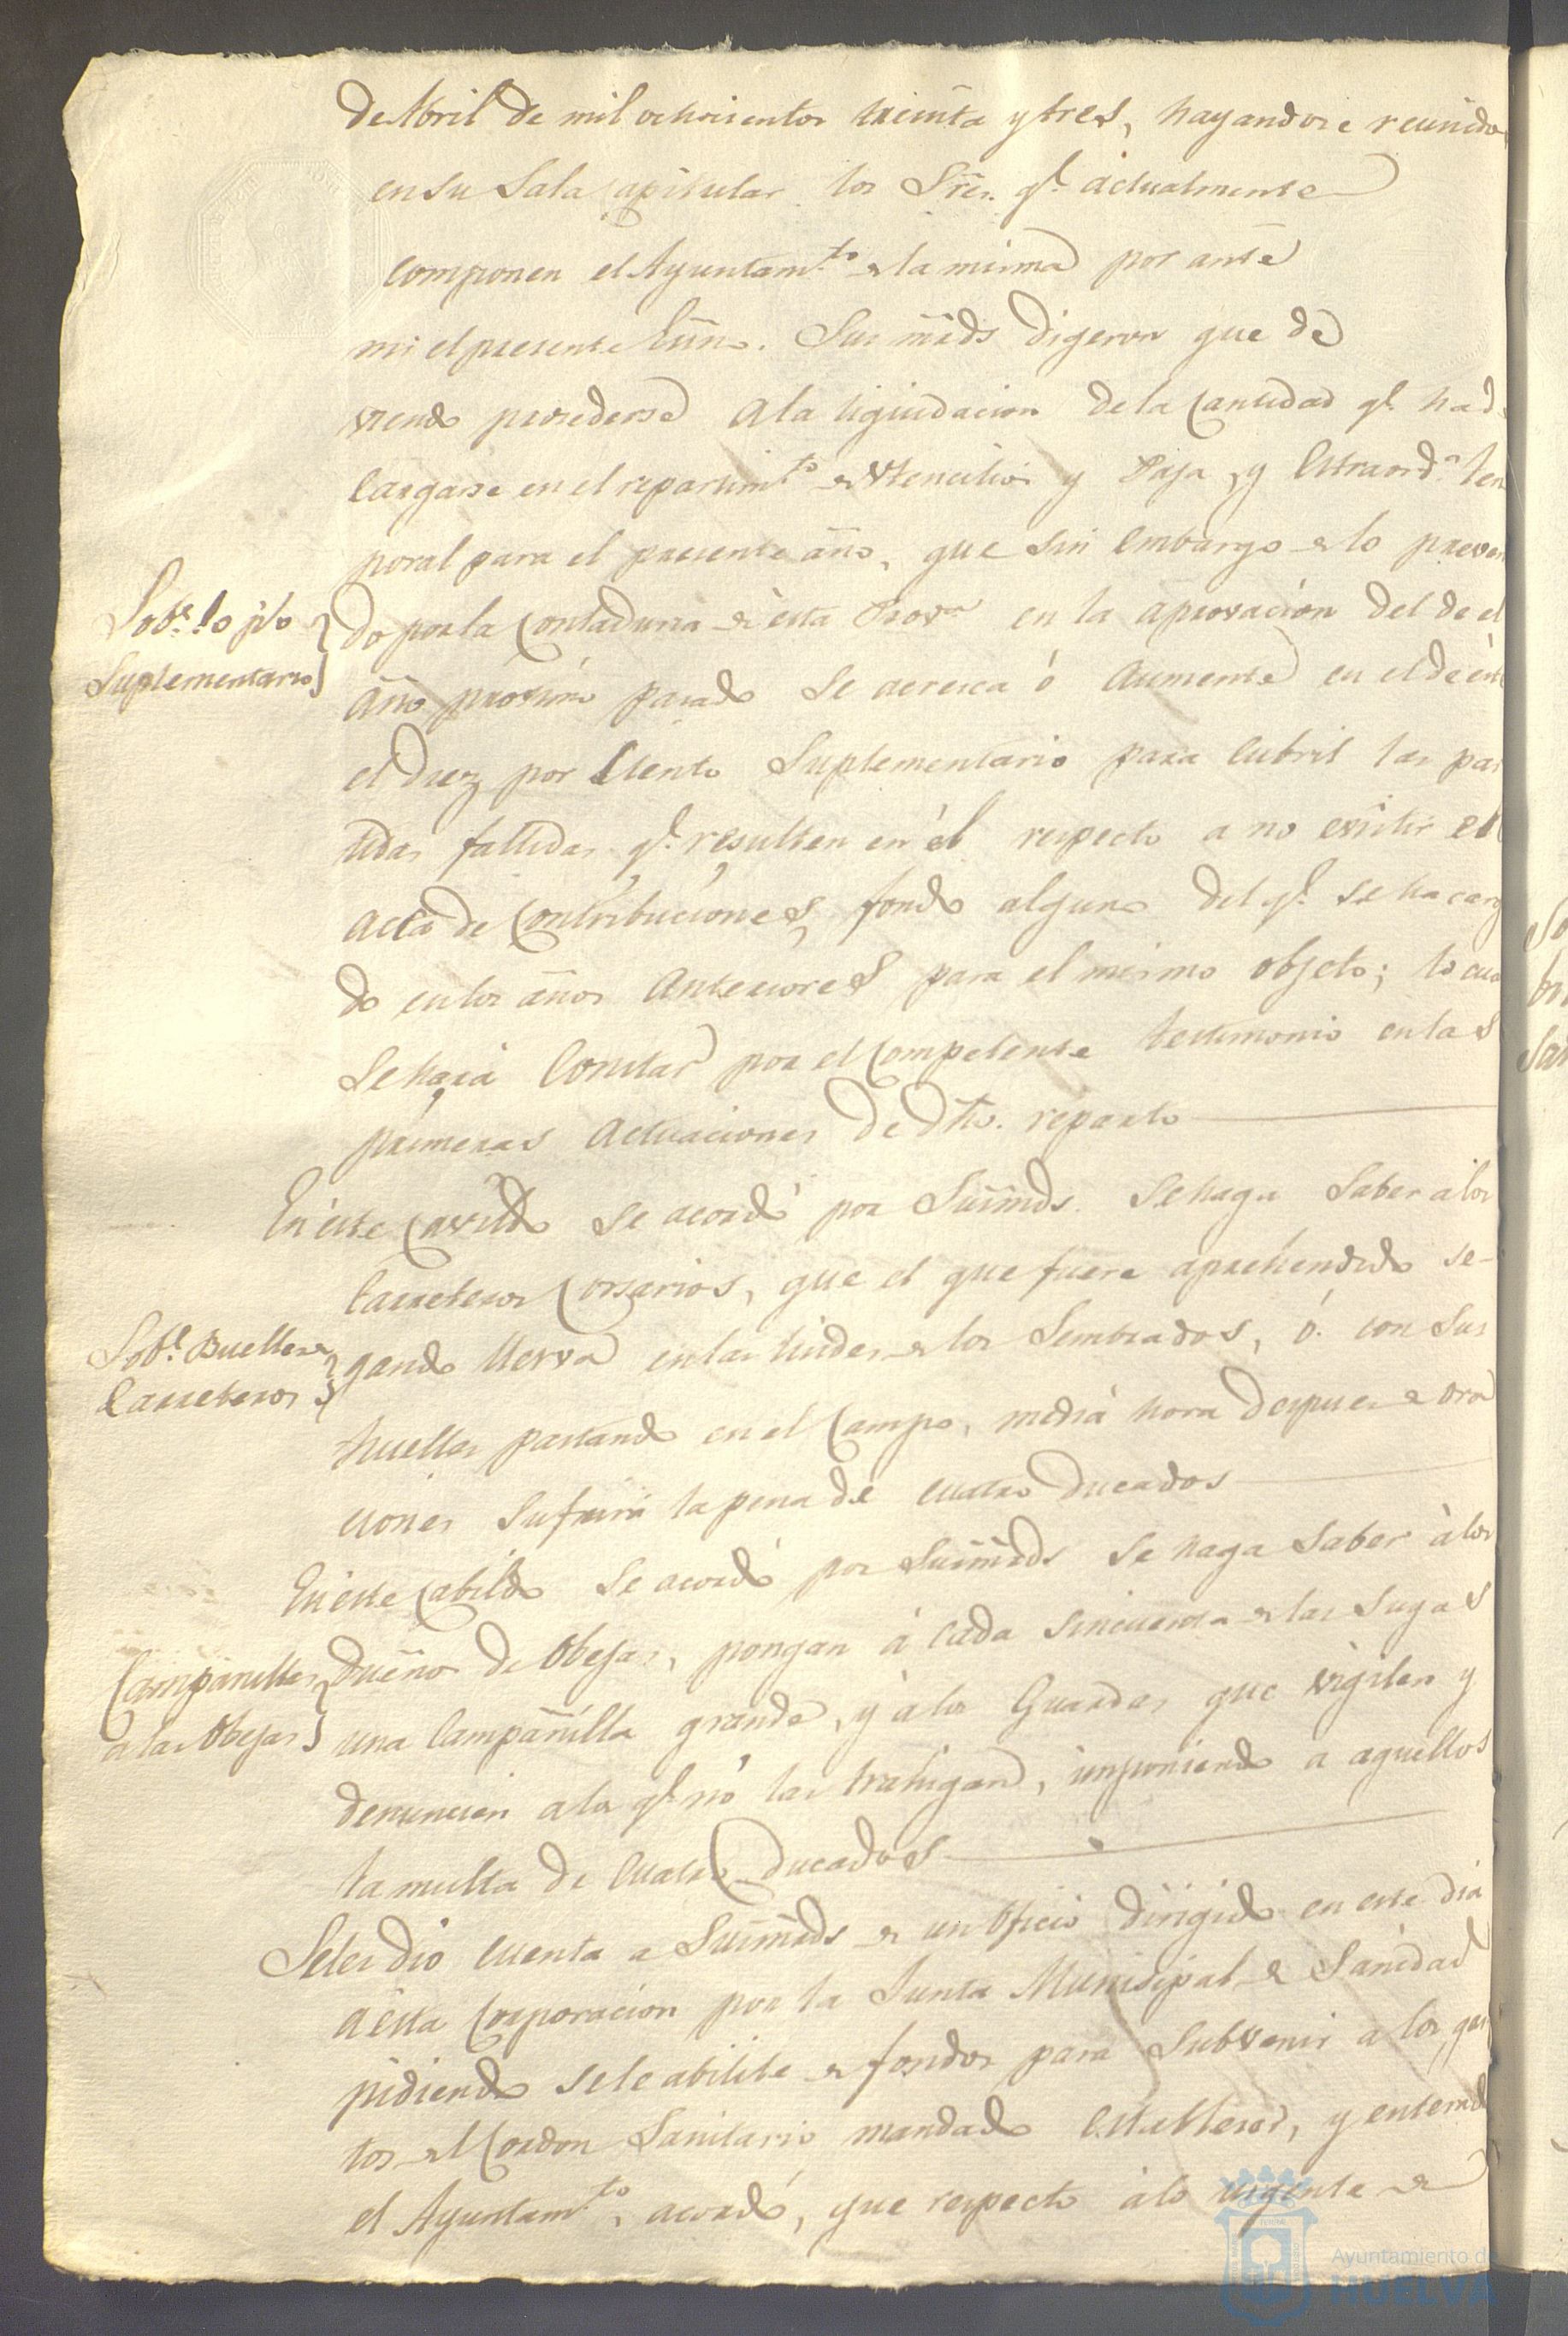 de Abril de mil ochosientos treinta y tres, hayandose reunidos
en su Sala Capitular los Sres. qe. actualmente
componen el Ayuntamto. de la misma por ante
mi el presente Essno. Sus mrds digeron que de
viendo prosederse a la liquidacion de la Cantidad qe. ha d
cargarse en el repartimto. de Utencilios y Paja, y Estraordo. tem
poral para el presente año, que sin embargo de lo preven
Sobre. lo p%o
Suplementario
do por la Contaduria de esta Prova en la aprovacion del de el
año procsimo pasado se acresca ó aumente en el de éste
el Diez por Ciento Suplementario para cubrir las par
tidas fallidas qe. resulten en él respecto a no exsistir en
acta de Contribuciones fondo alguno del qe. se ha carga
do en los años anteriores para el mismo objeto; lo cual
se hará Constar por el Competente testimonio en las
primeras actuaciones de dho. reparto
En éste Cavildo se acordó por Susmrds. se haga saber á los
Carreteros Cosarios, que el que fuere aprehendido se-
Sobe. Bueltes
Carreteros
gando Yerva en las lindes de los Sembrados, ó con sus
huelles pastando en el Campo, media hora despues de ora
ciones sufrirá la pena de cuatro ducados
En éste Cabildo se acordó por Susmrds se haga saber á los
Campanillas
a las Obejas
dueños de Obejas, pongan á cada sincuenta de las sugas
una Campañilla grande, y á los Guardas que vigilen y
denuncien a los qe. nó las trahigan, imponiendo a aquellos
la multa de Cuatro ducados
Seles dio cuenta a Susmrds de un Oficio dirigido en este dia
a ésta Corporacion por la Junta Munisipal de Sanidad
pidiendo se le abilite de fondos para Subvenir a los gas
tos del Cordon Sanitario mandado establecer, y enterado
el Ayuntamto., acordó, que respecto á lo urgente de
Ayuntamiento de
HUELVA